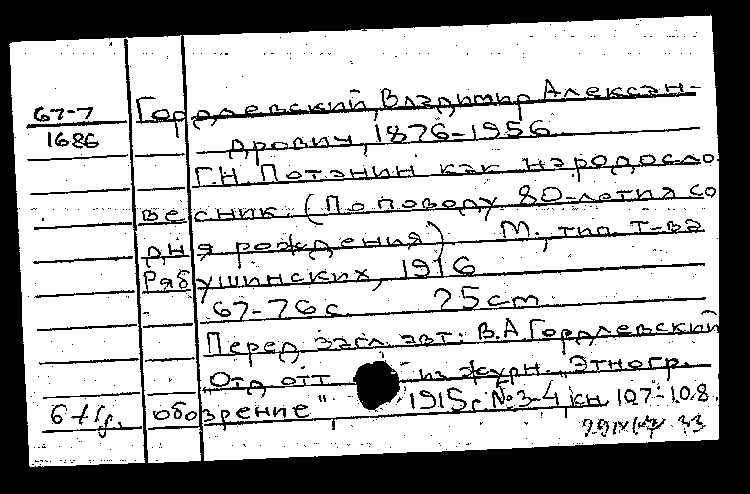 67-7 Гордлевский, Владимир Алексан-
1686 дрович, 1876-1956.
Г.Н. Потанин как народосло-
весник. (По поводу 80-летия со
дня рождения) М., тип. Т-ва
Рябушинских, 1916
67-76 с. 25 cm.
Перед загл. авт.: В.А. Гордлевский
"Отд. отт. из журн. "Этногр.
обозрение", 1915 г. № 3-4, кн. 107-108.
33